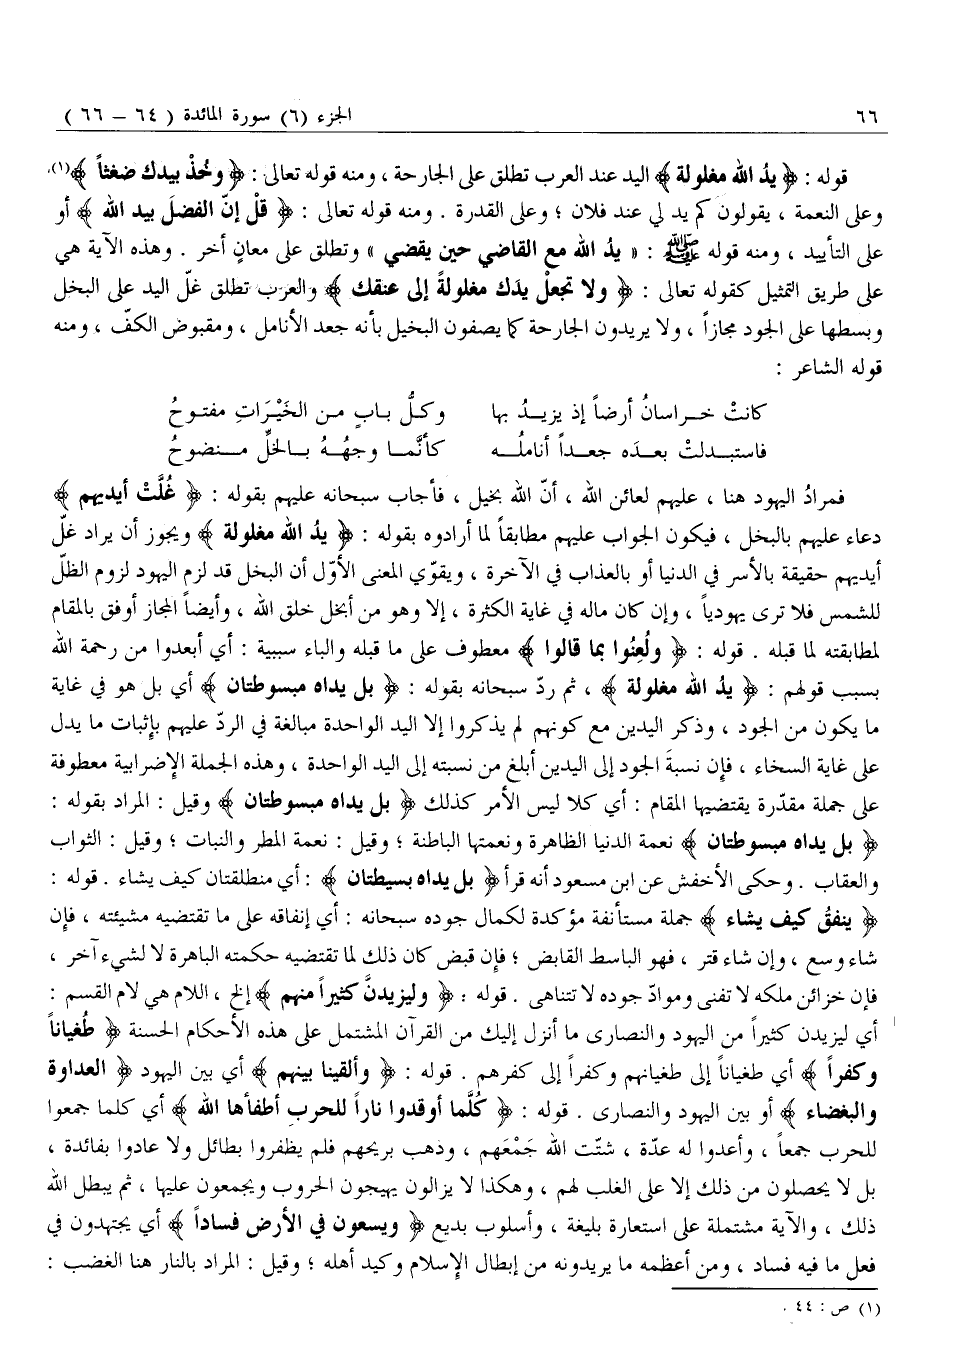 ٦٦ الجزء (٦) سورة المائدة ( ٦٤ – ٦٦ )
قوله : ﴿ يدُ الله مغلولة ﴾ اليد عند العرب تطلق على الجارحة ، ومنه قوله تعالى : ﴿ وخُذْ بيدك ضغثاً ﴾(١)،
وعلى النعمة ، يقولون كم يد لي عند فلان ؛ وعلى القدرة . ومنه قوله تعالى : ﴿ قلْ إنّ الفضلَ بيد الله ﴾ أو
على التأييد ، ومنه قوله ﷺ : « يدُ الله مع القاضي حين يقضي » وتطلق على معانٍ أخر . وهذه الآية هي
على طريق التمثيل كقوله تعالى : ﴿ ولا تجعلْ يدَك مغلولةً إلى عنقك ﴾ والعرب تطلق غلّ اليد على البخل
وبسطها على الجود مجازاً ، ولا يريدون الجارحة كما يصفون البخيل بأنه جعد الأنامل ، ومقبوض الكفّ ، ومنه
قوله الشاعر :
كانتْ خراسانُ أرضاً إذ يزيدُ بها وكلُّ بابٍ من الخَيْرَاتِ مفتوحُ
فاستبدلتْ بعدَه جعداً أناملُه كأنَّما وجهُهُ بالخلِّ منضوحُ
فمرادُ اليهود هنا ، عليهم لعائن الله ، أنّ الله بخيل ، فأجاب سبحانه عليهم بقوله : ﴿ غُلَّتْ أيديهم ﴾
دعاء عليهم بالبخل ، فيكون الجواب عليهم مطابقاً لما أرادوه بقوله : ﴿ يدُ الله مغلولة ﴾ ويجوز أن يراد غلّ
أيديهم حقيقة بالأسر في الدنيا أو بالعذاب في الآخرة ، ويقوّي المعنى الأوّل أن البخل قد لزم اليهود لزوم الظلّ
للشمس فلا ترى يهودياً ، وإن كان ماله في غاية الكثرة ، إلا وهو من أبخل خلق الله ، وأيضاً المجاز أوفق بالمقام
لمطابقته لما قبله . قوله : ﴿ ولُعِنُوا بما قالوا ﴾ معطوف على ما قبله والباء سببية : أي أبعدوا من رحمة الله
بسبب قولهم : ﴿ يدُ الله مغلولة ﴾ ، ثم ردّ سبحانه بقوله : ﴿ بل يداه مبسوطتان ﴾ أي بل هو في غاية
ما يكون من الجود ، وذكر اليدين مع كونهم لم يذكروا إلا اليد الواحدة مبالغة في الردّ عليهم بإثبات ما يدل
على غاية السخاء ، فإن نسبةَ الجود إلى اليدين أبلغ من نسبته إلى اليد الواحدة ، وهذه الجملة الإضرابية معطوفة
على جملة مقدّرة يقتضيها المقام : أي كلا ليس الأمر كذلك ﴿ بل يداه مبسوطتان ﴾ وقيل : المراد بقوله :
﴿ بل يداه مبسوطتان ﴾ نعمة الدنيا الظاهرة ونعمتها الباطنة ؛ وقيل : نعمة المطر والنبات ؛ وقيل : الثواب
والعقاب . وحكى الأخفش عن ابن مسعود أنه قرأ ﴿ بل يداه بسيطتان ﴾ : أي منطلقتان كيف يشاء . قوله :
﴿ ينفقُ كيف يشاء ﴾ جملة مستأنفة مؤكدة لكمال جوده سبحانه : أي إنفاقه على ما تقتضيه مشيئته ، فإن
شاء وسع ، وإن شاء قتر ، فهو الباسط القابض ؛ فإن قبض كان ذلك لما تقتضيه حكمته الباهرة لا لشيء آخر ،
فإن خزائن ملكه لا تفنى وموادّ جوده لا تتناهى . قوله : ﴿ وليزيدنَّ كثيراً منهم ﴾ إلخ ، اللام هي لام القسم :
أي ليزيدن كثيراً من اليهود والنصارى ما أنزل إليك من القرآن المشتمل على هذه الأحكام الحسنة ﴿ طُغياناً
وكفراً ﴾ أي طغياناً إلى طغيانهم وكفراً إلى كفرهم . قوله : ﴿ وألقينا بينهم ﴾ أي بين اليهود ﴿ العداوة
والبغضاء ﴾ أو بين اليهود والنصارى . قوله : ﴿ كُلَّما أوقدوا ناراً للحربِ أطفأها الله ﴾ أي كلما جمعوا
للحرب جمعاً ، وأعدوا له عدّة ، شتّت الله جَمْعَهم ، وذهب بريحهم فلم يظفروا بطائل ولا عادوا بفائدة ،
بل لا يحصلون من ذلك إلا على الغلب لهم ، وهكذا لا يزالون يهيجون الحروب ويجمعون عليها ، ثم يبطل الله
ذلك ، والآية مشتملة على استعارة بليغة ، وأسلوب بديع ﴿ ويسعون في الأرض فساداً ﴾ أي يجتهدون في
فعل ما فيه فساد ، ومن أعظمه ما يريدونه من إبطال الإسلام وكيد أهله ؛ وقيل : المراد بالنار هنا الغضب :
(١) ص : ٤٤ .